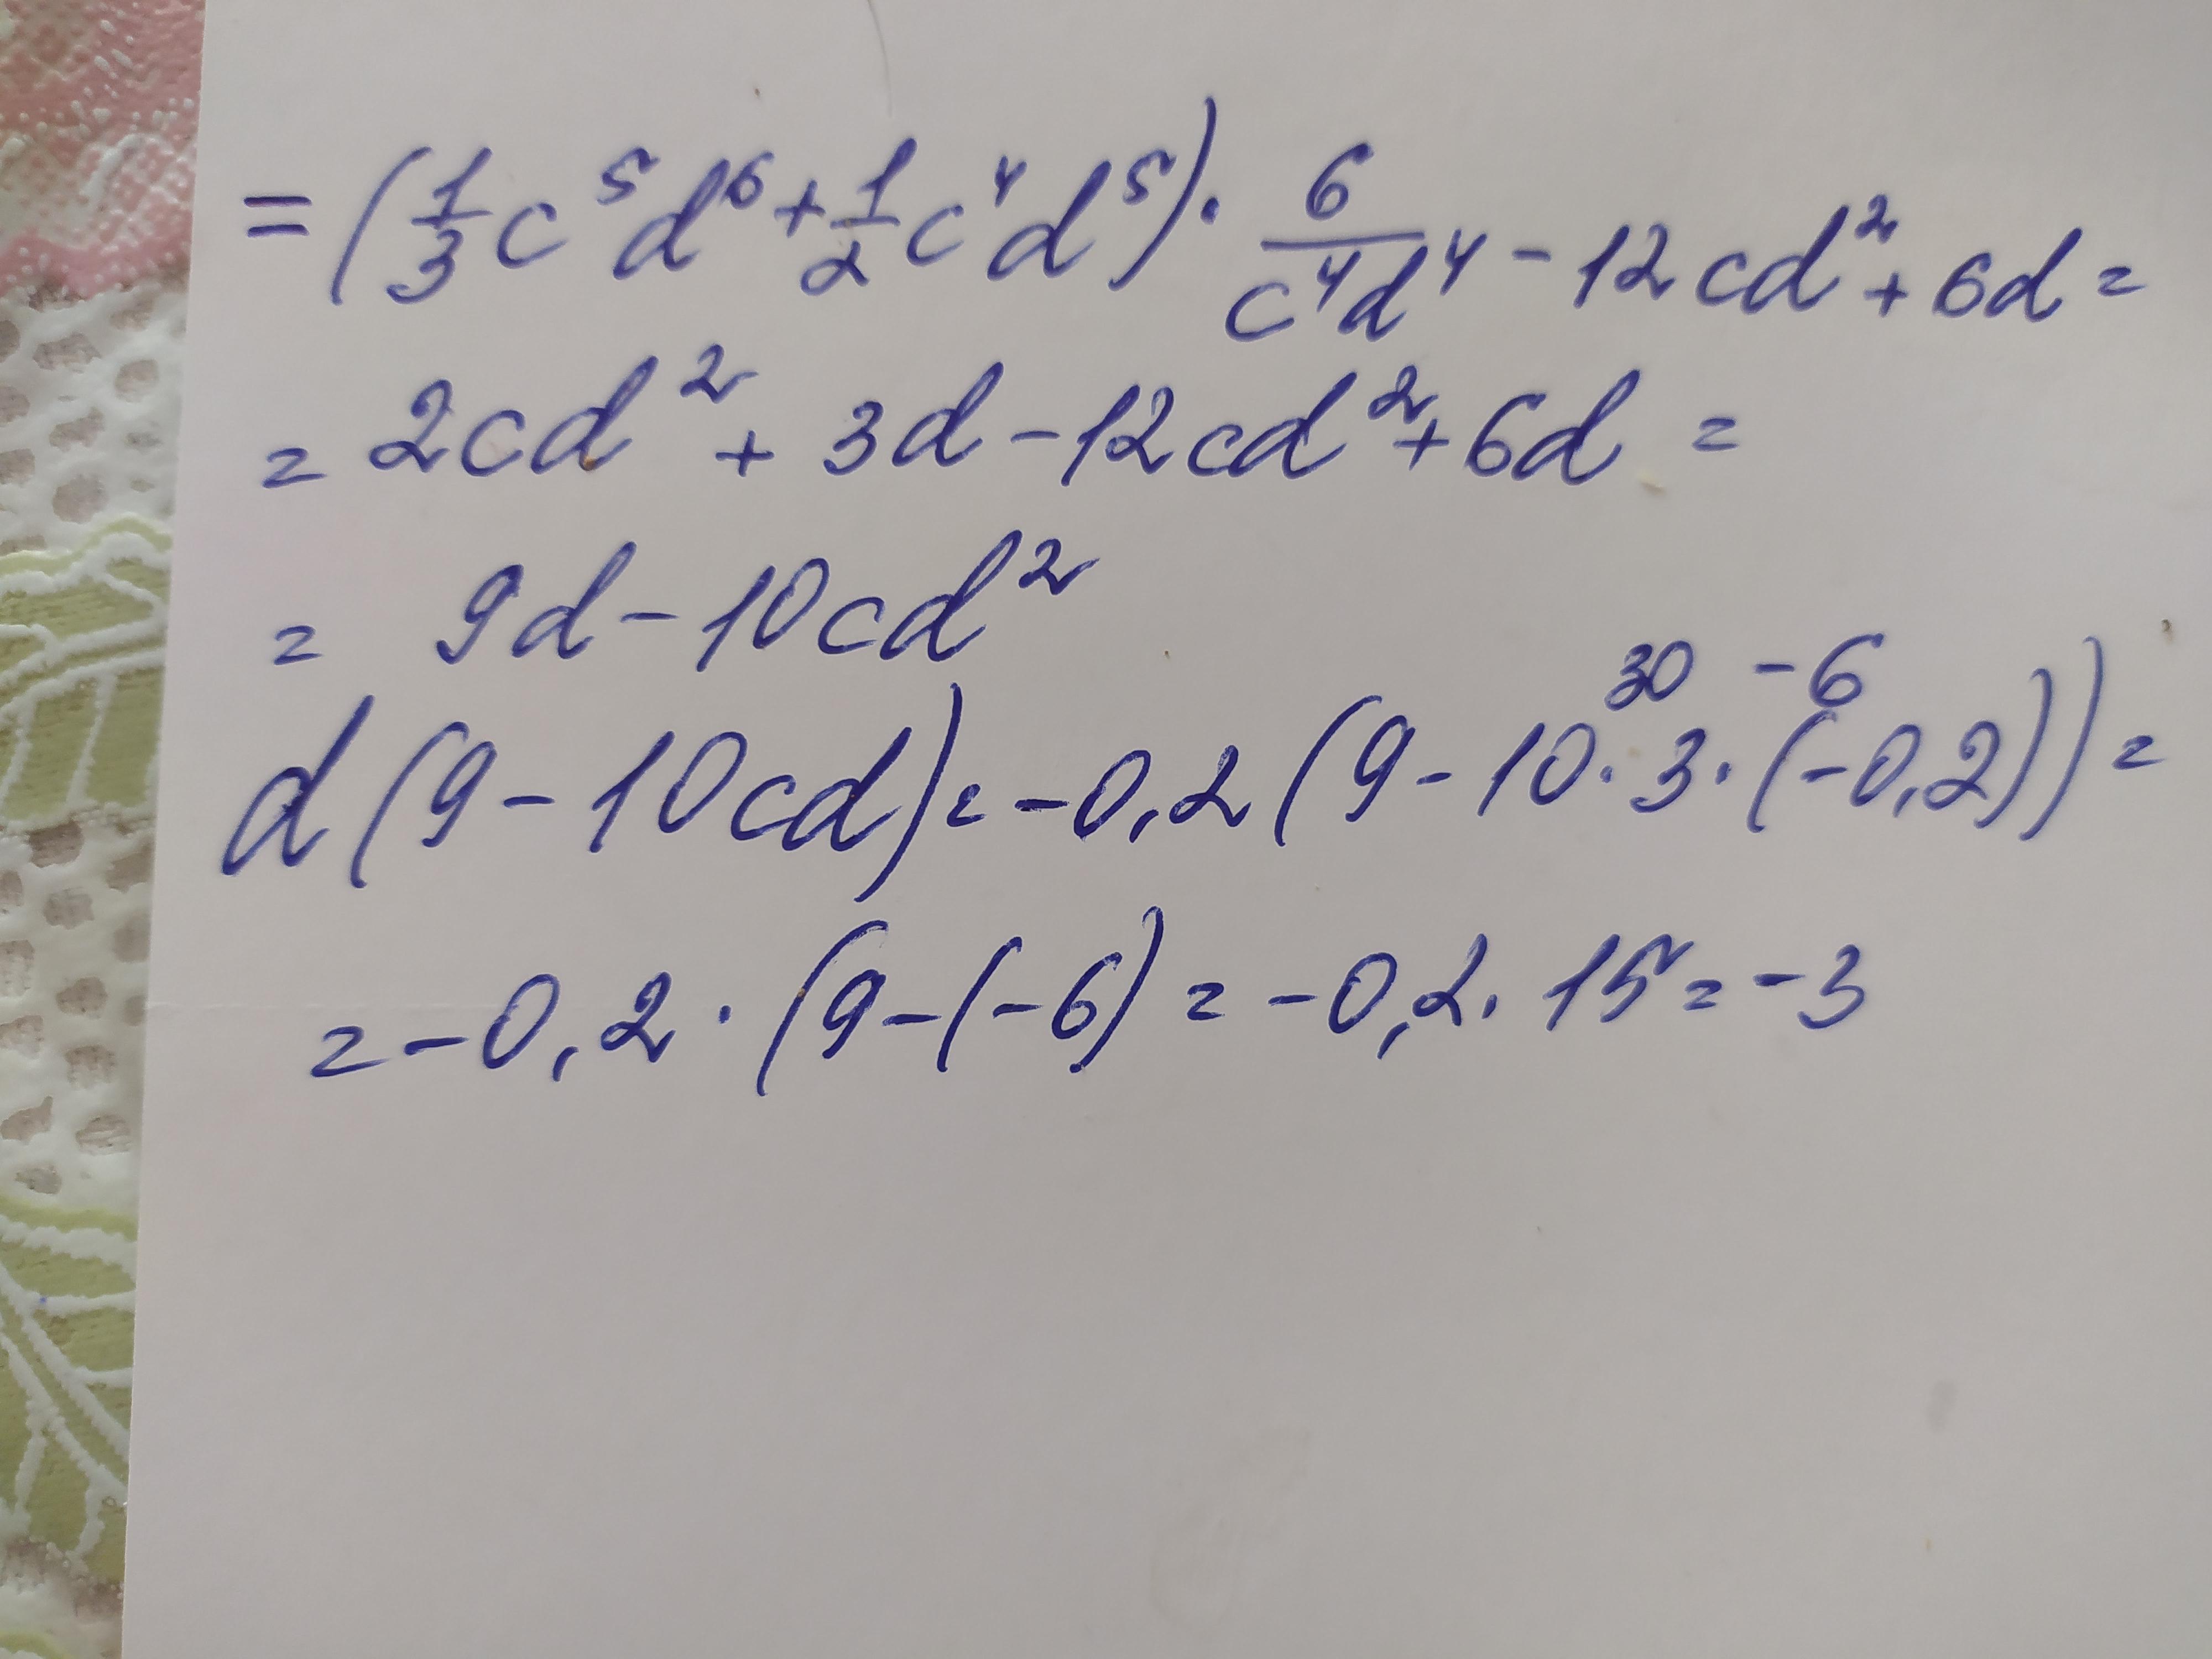 = (1/3 c⁵d⁶ + 1/2 c⁴d⁵) · 6/c⁴d⁴ - 12cd² + 6d =
= 2cd² + 3d - 12cd² + 6d =
= 9d - 10cd²
30 -6
d(9 - 10cd) = -0,2(9 - 10·3·(-0,2)) =
= -0,2·(9-(-6) = -0,2·15 = -3